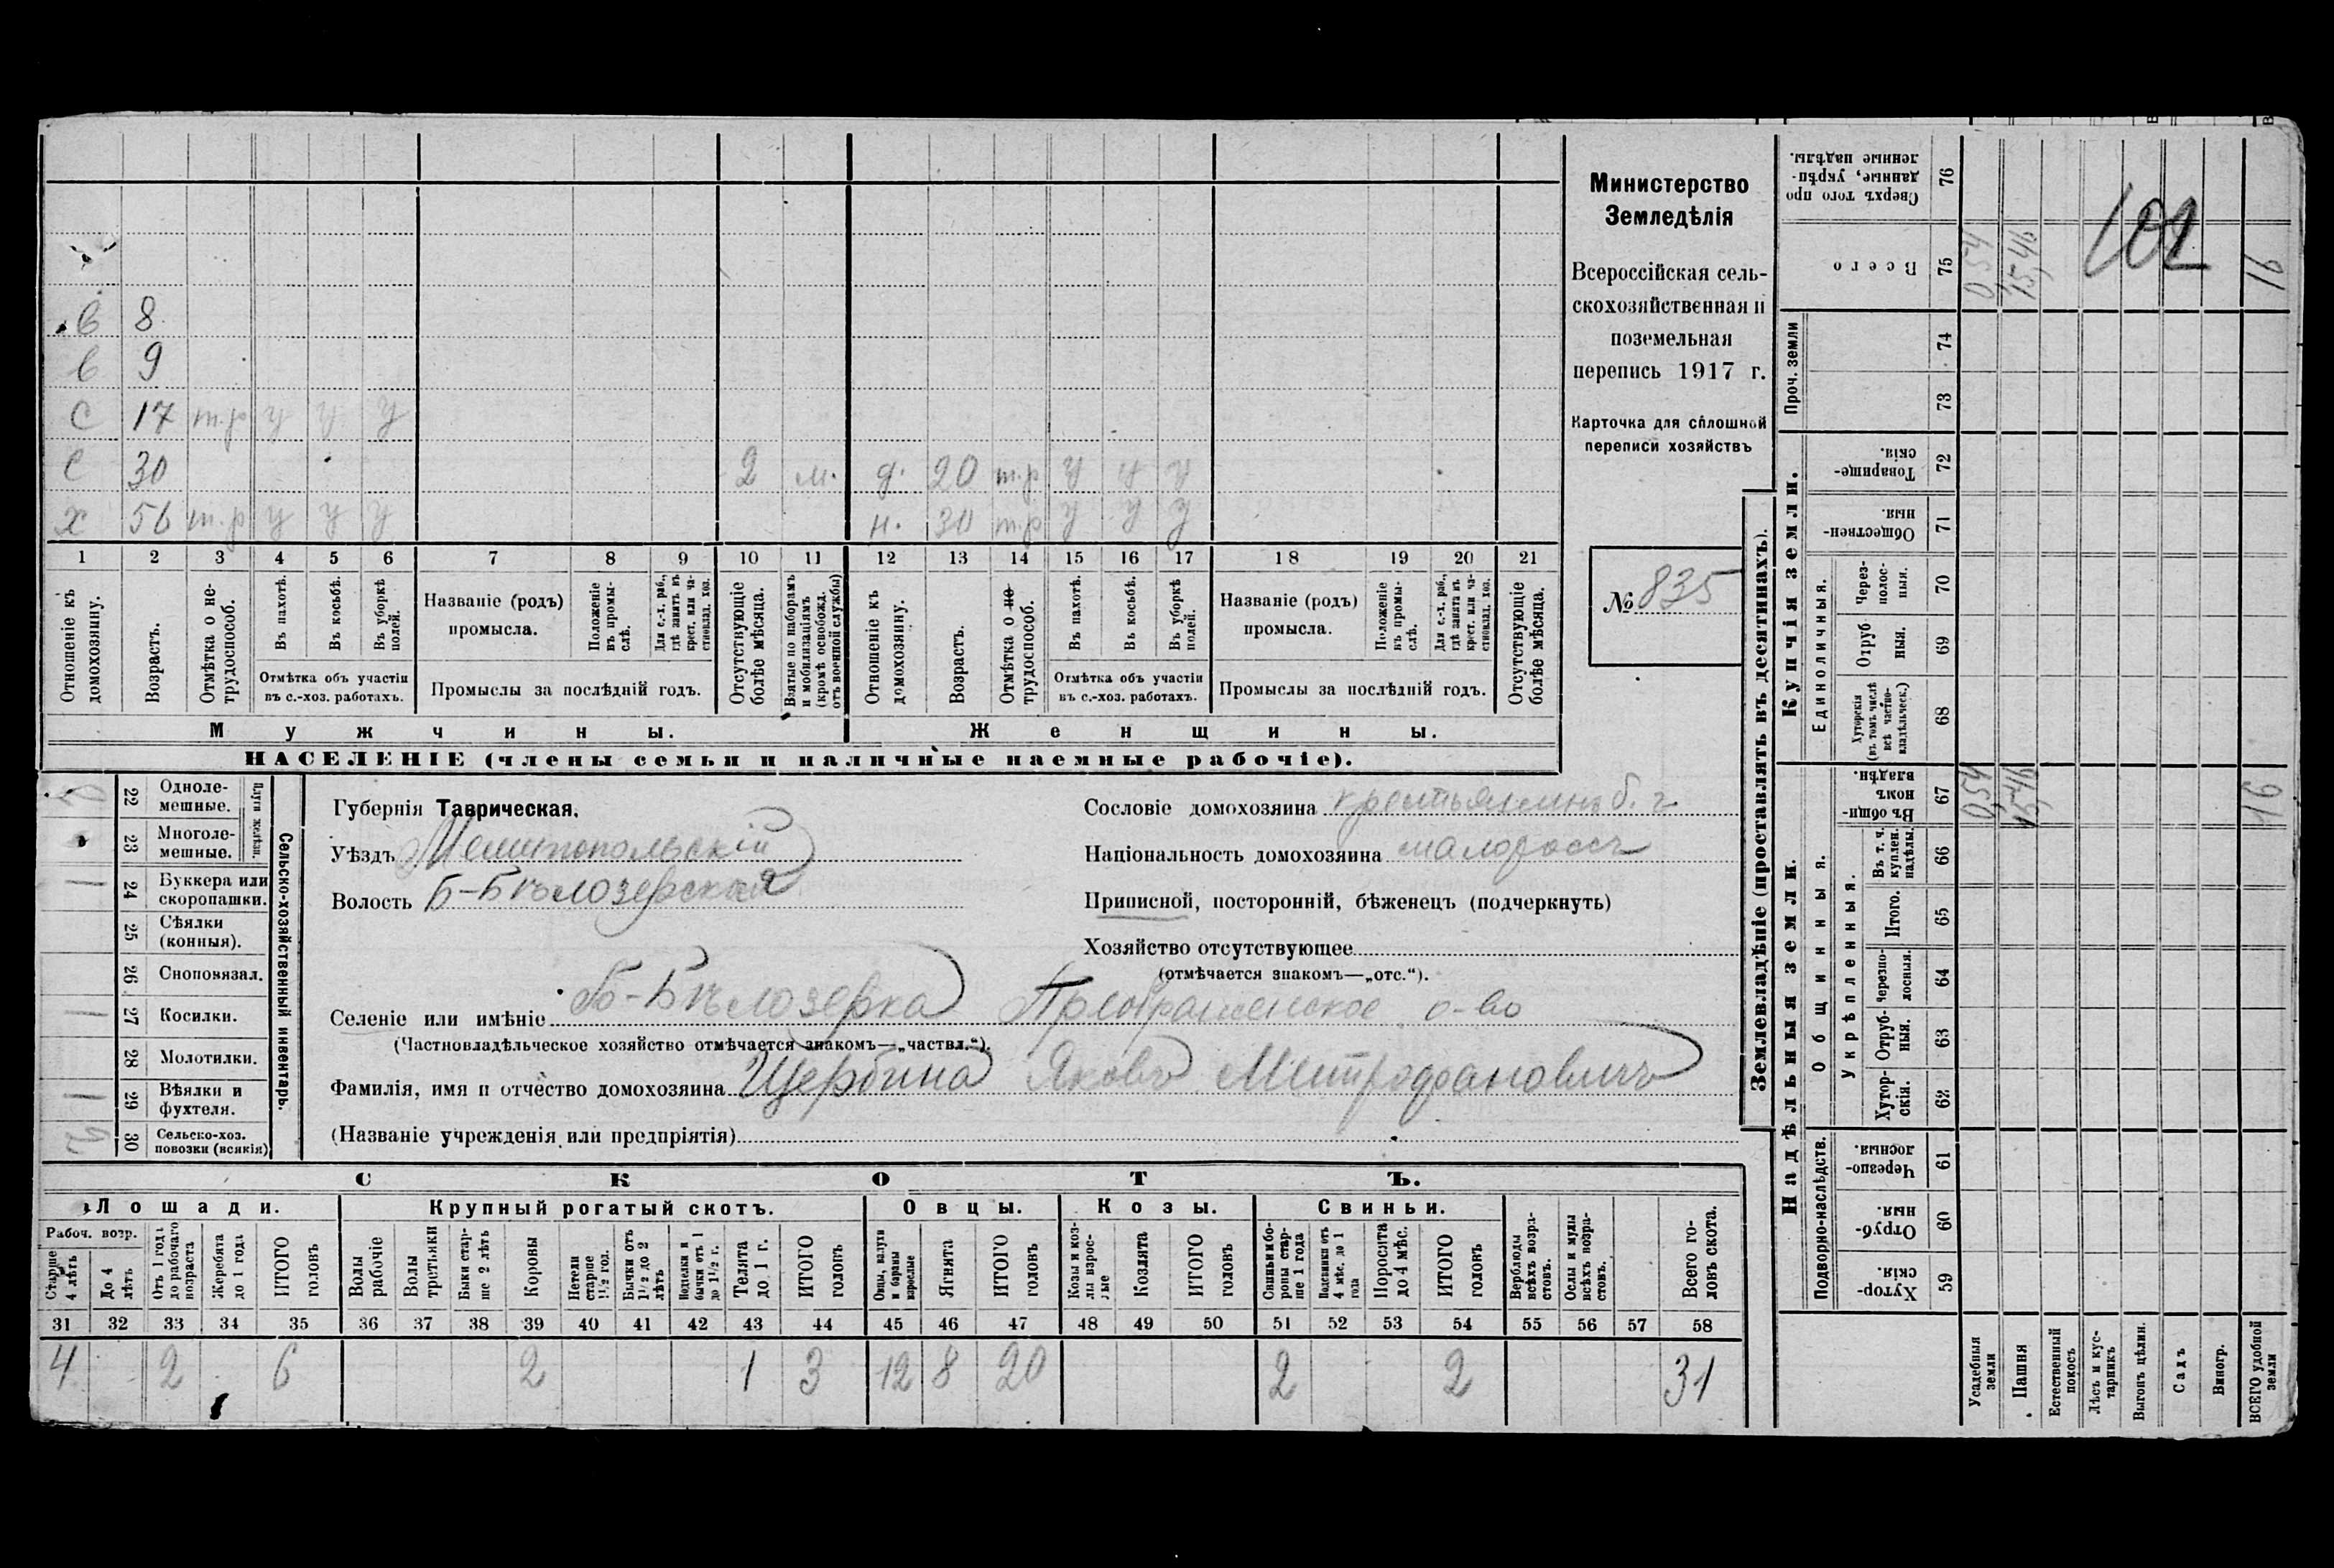 Министерство
Земледѣлія
Всероссійская сель-
скохозяйственная и
поземельная
перепись 1917 г.
Карточка для сплошной
переписи хозяйствъ
№ 835
в 8
в 9
с 17 т.р у у у
с 30 2 м. д. 20 т.р у у у
х 56 т.р у у у н. 30 т.р у у у
1 2 3 4 5 6 7 8 9 10 11 12 13 14 15 16 17 18 19 20 21
Отношеніе къ домохозяину.
Возрастъ.
Отмѣтка о не-трудоспособ.
Въ пахотѣ.
Въ косьбѣ.
Въ уборкѣ полей.
Отмѣтка объ участіи
въ с.-хоз. работахъ.
Названіе (родъ)
промысла.
Положеніе въ промы-слѣ.
Для с.-х. раб., гдѣ занятъ въ крест. или ча-стновлад. хоз.
Промыслы за послѣдній годъ.
Отсутствующіе болѣе мѣсяца.
Взятые по наборамъ и мобилизаціямъ (кромѣ освобожд. отъ военной службы)
Отношеніе къ домохозяину.
Возрастъ.
Отмѣтка о не-трудоспособ.
Въ пахотѣ.
Въ косьбѣ.
Въ уборкѣ полей.
Отмѣтка объ участіи
въ с.-хоз. работахъ.
Названіе (родъ)
промысла.
Положеніе въ промы-слѣ.
Для с.-х. раб., гдѣ занята въ крест. или ча-стновлад. хоз.
Промыслы за послѣдній годъ.
Отсутствующіе болѣе мѣсяца.
Мужчины.
Женщины.
НАСЕЛЕНІЕ (члены семьи и наличные наемные рабочіе).
Сельско-хозяйственный инвентарь.
Плуги желѣзн.
22 Одноле-мешные.
23 Многоле-мешные.
24 Буккера или скоропашки.
25 Сѣялки (конныя).
26 Сноповязал.
27 Косилки.
28 Молотилки.
29 Вѣялки и фухтеля.
30 Сельско-хоз. повозки (всякія)
Губернія Таврическая.
Уѣздъ Мелитопольскій
Волость Б-Бѣлозерская
Сословіе домохозяина крестьянинъ б. г
Національность домохозяина малороссъ
Приписной, посторонній, бѣженецъ (подчеркнуть)
Хозяйство отсутствующее
(отмѣчается знакомъ—„отс.“).
Селеніе или имѣніе Б-Бѣлозерка Преображенское о-во
(Частновладѣльческое хозяйство отмѣчается знакомъ—„частвл.“).
Фамилія, имя и отчество домохозяина Щербина Яковъ Митрофановичъ
(Названіе учрежденія или предпріятія)
СКОТЪ.
Лошади. Крупный рогатый скотъ. Овцы. Козы. Свиньи.
Рабоч. возр.
Старше 4 лѣтъ
До 4 лѣтъ
Отъ 1 года до рабочаго возраста
Жеребята до 1 года
ИТОГО головъ
Волы рабочіе
Волы третьяки
Быки стар-ше 2 лѣтъ
Коровы
Нетели старше 1½ год.
Бычки отъ 1½ до 2 лѣтъ
Подтелки и бычки отъ 1 до 1½ г.
Телята до 1 г.
ИТОГО головъ
Овцы, валухи и бараны взрослые
Ягнята
ИТОГО головъ
Козы и коз-лы взрос-лые
Козлята
ИТОГО головъ
Свиньи и бо-ровы стар-ше 1 года
Подсвинки отъ 4 мѣс. до 1 года
Поросята до 4 мѣс.
ИТОГО головъ
Верблюды всѣхъ возра-стовъ.
Ослы и мулы всѣхъ возра-стовъ.
Всего го-ловъ скота.
31 32 33 34 35 36 37 38 39 40 41 42 43 44 45 46 47 48 49 50 51 52 53 54 55 56 57 58
4 2 6 2 1 3 12 8 20 2 2 31
Землевладѣніе (проставлять въ десятинахъ).
Надѣльныя земли.
Купчія земли.
Проч. земли
Подворно-наслѣдств.
Общинныя.
Укрѣпленныя.
Единоличныя.
Сверхъ того про данные, укрѣп-ленные надѣлы. 76
Всего 75 0,54 15,46 16
102
74
73
Товарище-скія. 72
Обществен-ныя. 71
Через-полос-ныя. 70
Отруб ныя. 69
Хуторскія (въ томъ числѣ всѣ частно-владѣльческ.) 68
Въ общин-номъ владѣн. 67 0,54 15,46 16
Въ т. ч. куплен. надѣлы. 66
Итого. 65
Черезпо-лосныя. 64
Отруб-ныя. 63
Хутор-скія. 62
Черезпо-лосныя. 61
Отруб-ныя. 60
Хутор-скія. 59
Усадебныя земли
Пашня
Естественный покосъ
Лѣсъ и кус-тарникъ
Выгонъ цѣлин.
Садъ
Виногр.
ВСЕГО удобной земли